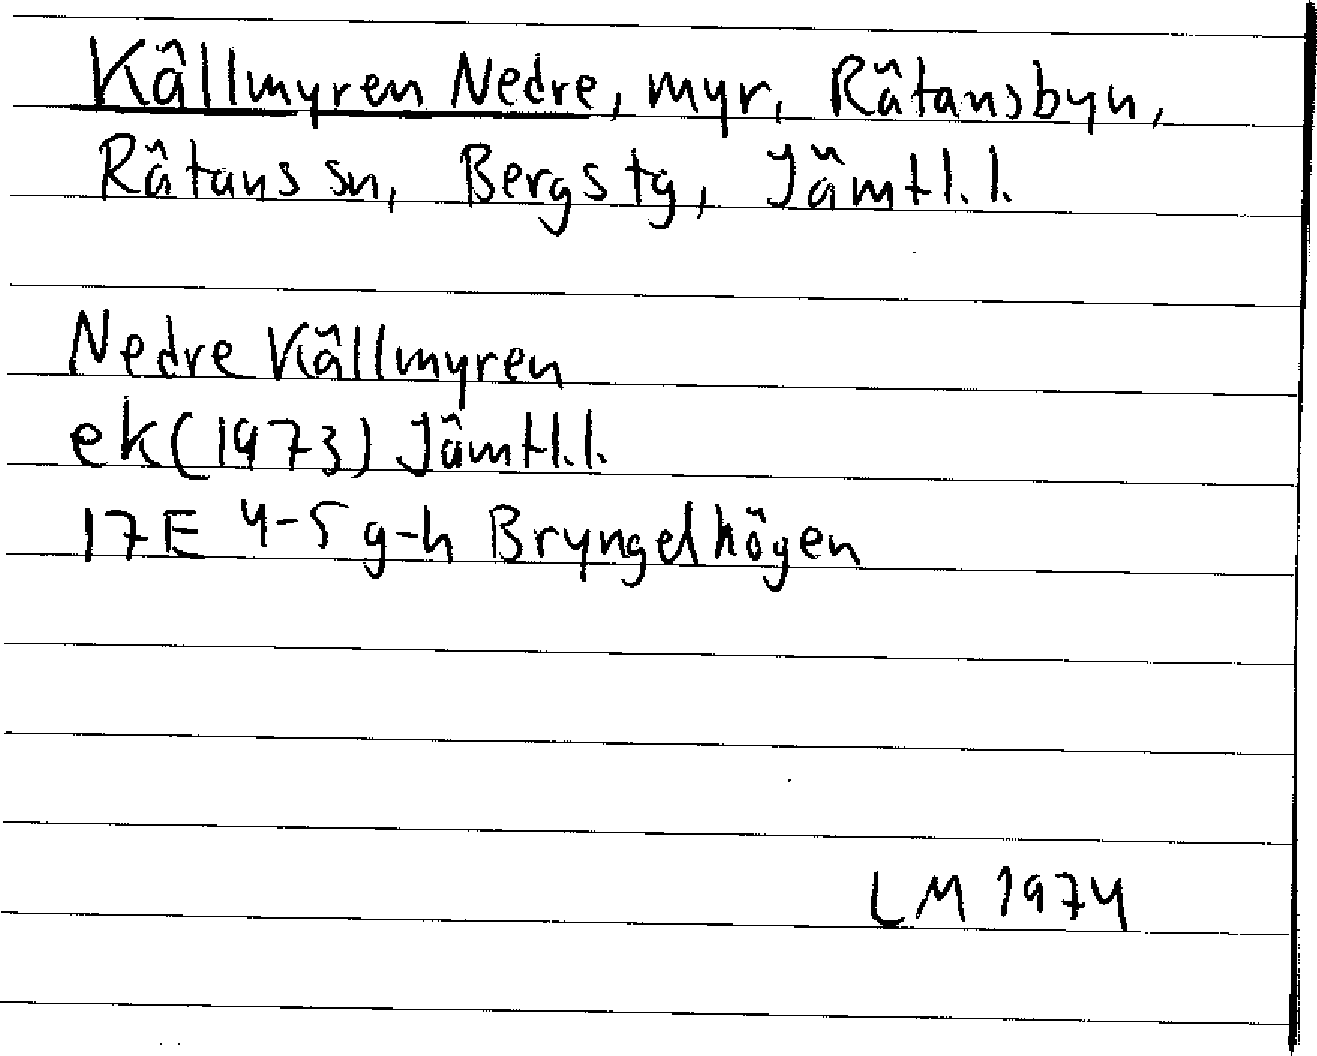 Källmyren Nedre, myr, Rätansbyn,
Rätans sn, Bergs tg, Jämtl.l.
Nedre Källmyren
ek(1973) Jämtl.l.
17E 4-5 g-h Bryngelhögen
LM 1974